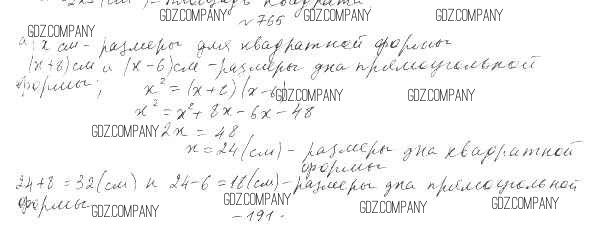 GDZ.COMPANY GDZ.COMPANY GDZ.COMPANY
№ 766
GDZ.COMPANY
а) x см - размеры для квадратной формы
(x+8) см и (x-6) см - размеры дна прямоугольной
формы;
x² = (x+8)(x-6)
GDZ.COMPANY GDZ.COMPANY
x² = x² + 8x - 6x - 48
GDZ.COMPANY 2x = 48
x = 24 (см) - размеры дна квадратной
формы
24+8 = 32 (см) и 24-6 = 18 (см) - размеры дна прямоугольной
формы
GDZ.COMPANY GDZ.COMPANY GDZ.COMPANY GDZ.COMPANY
- 191 -